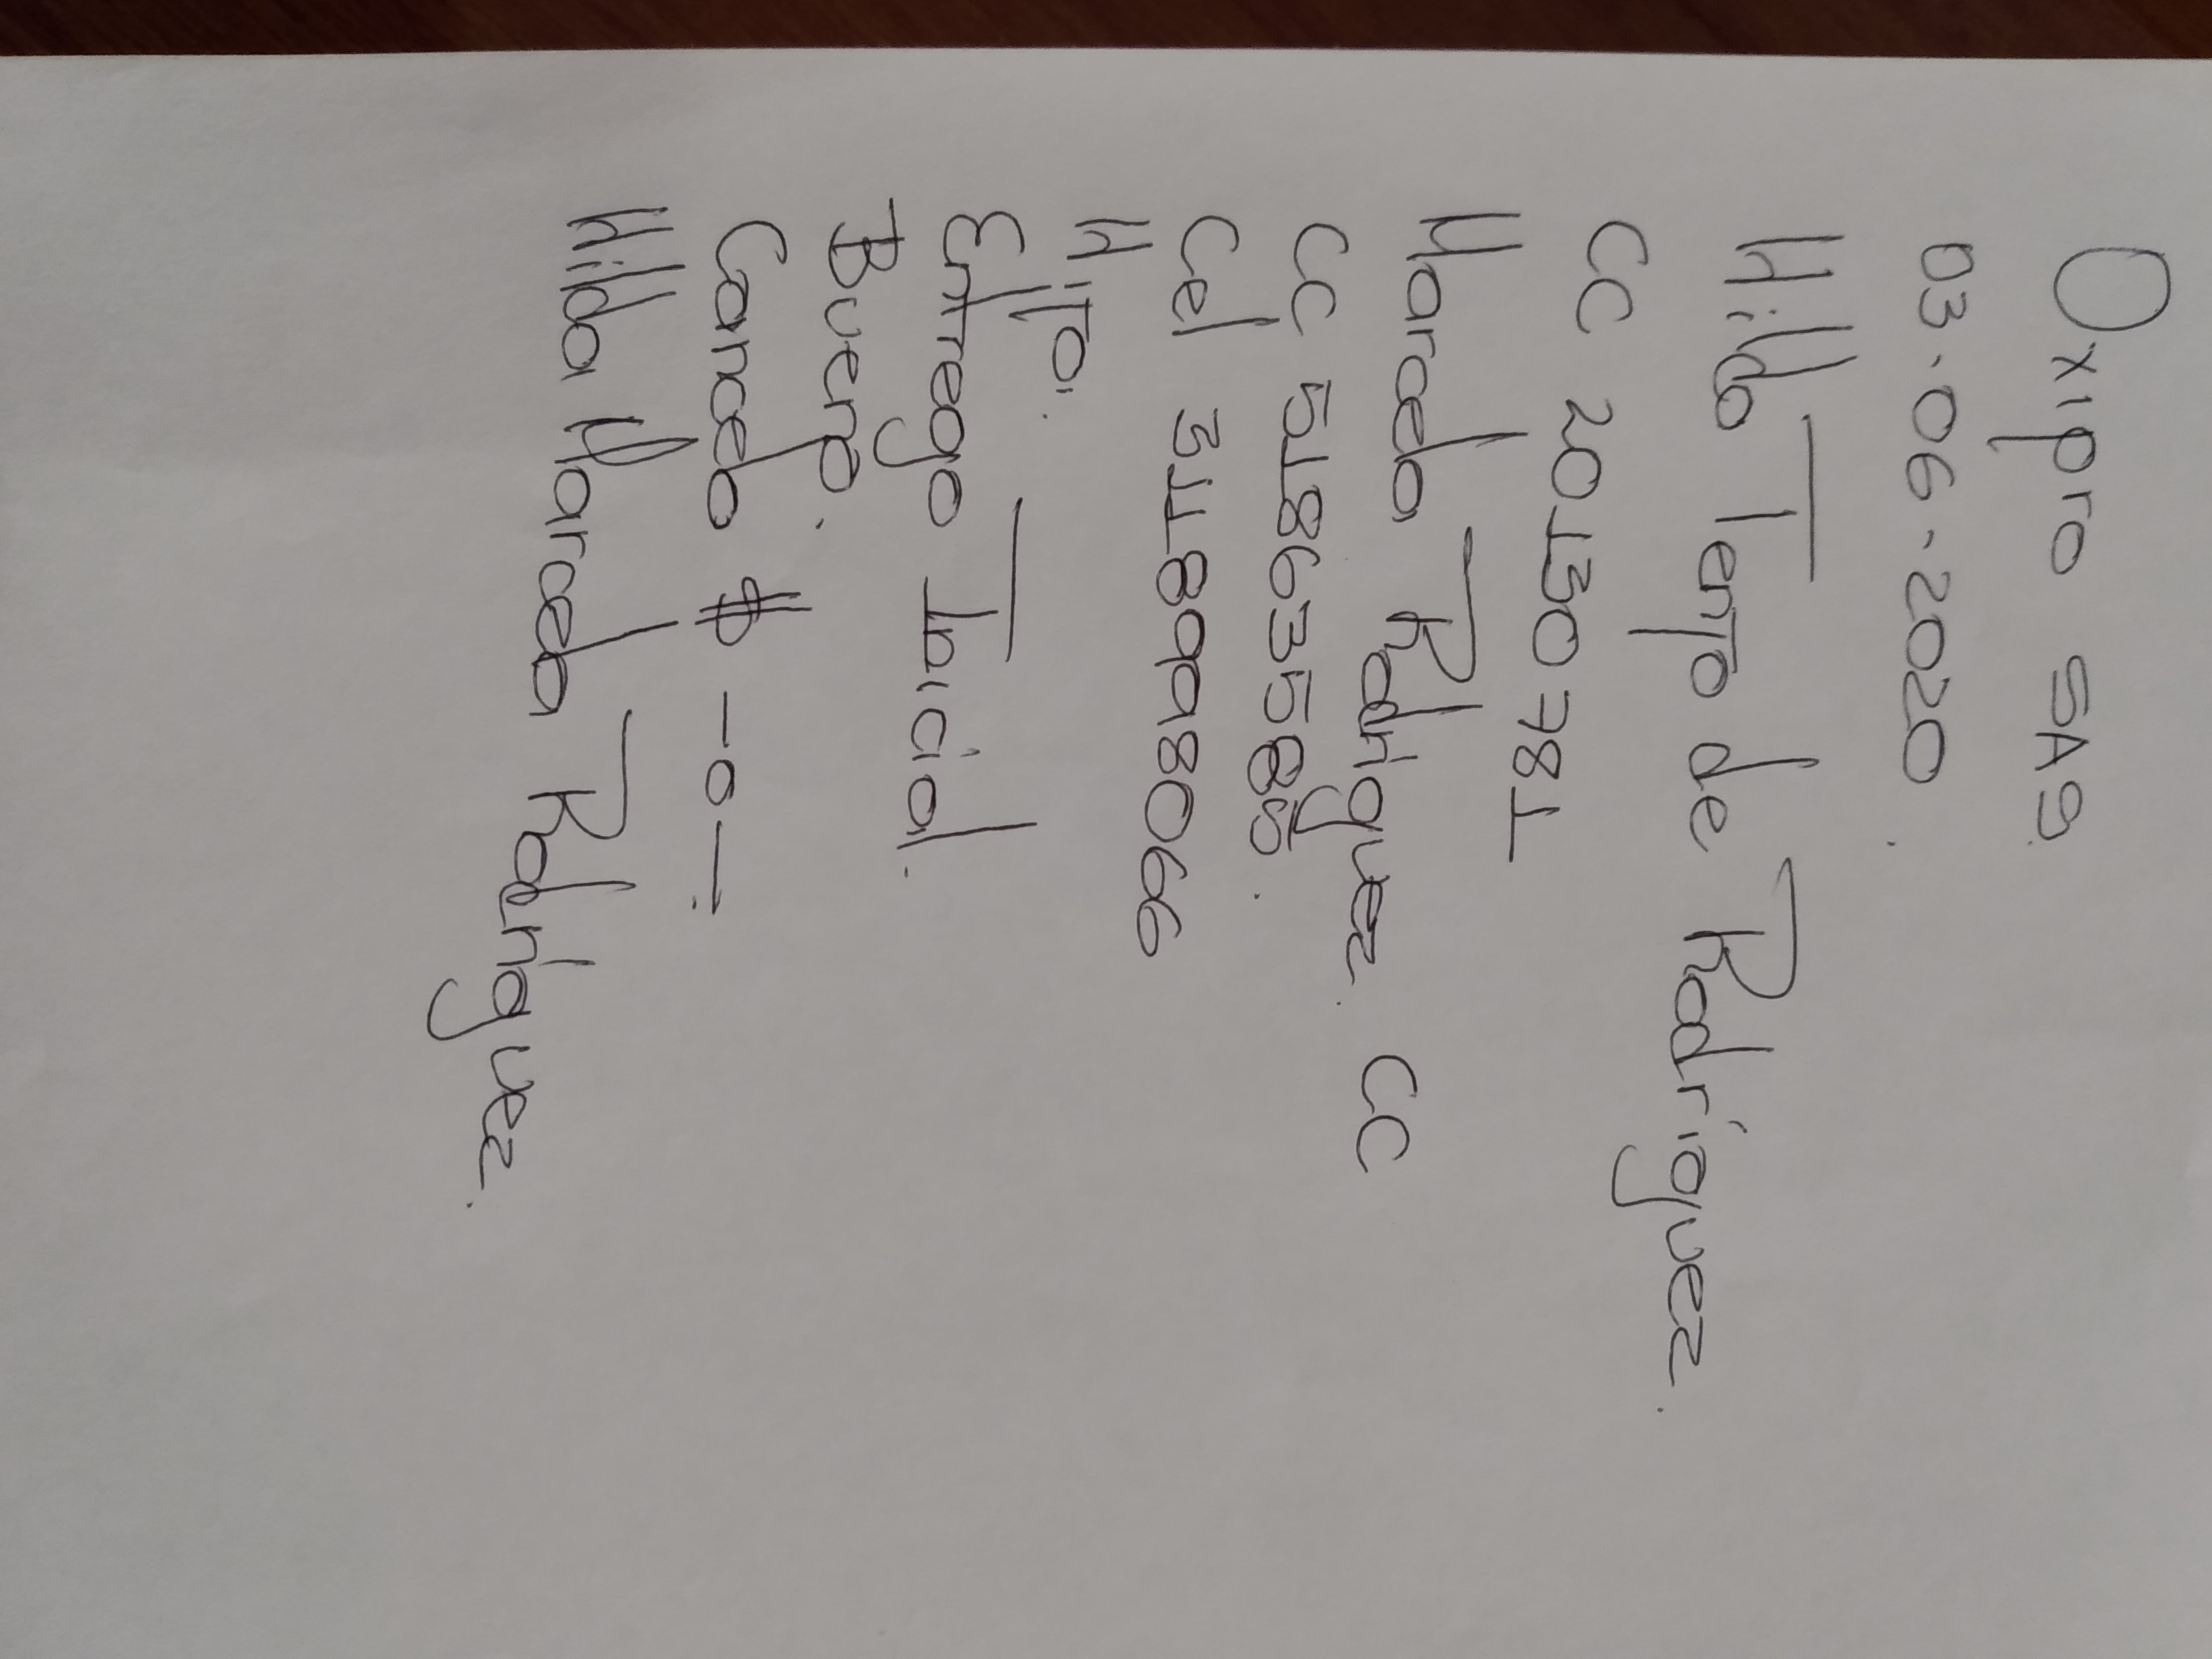 Oxipro SAS
03.06.2020.
Hilda Tento de Rodriguez.
CC 20130781
Marcela Rodriguez. CC
CC 51863585.
Cel 3118098066
Hija.
Entrega Inicial.
Buena.
Cancela $ -0-.
Hilda Marcela Rodriguez.